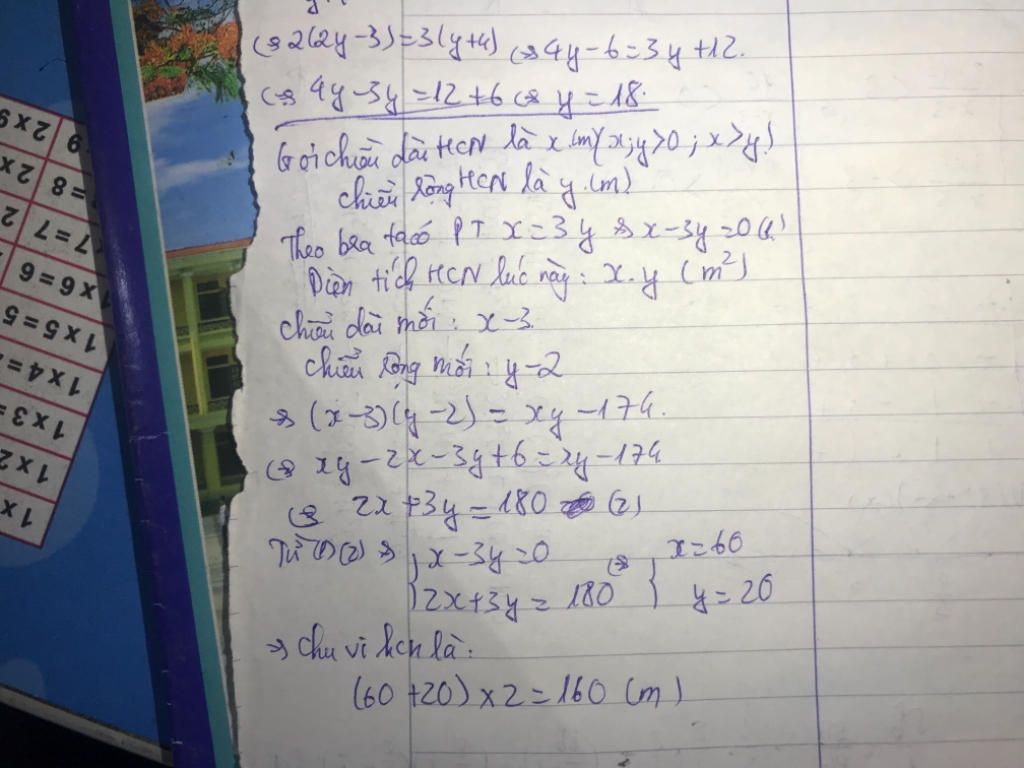 ⇔ 2(2y-3)=3(y+4) ⇔ 4y-6=3y+12.
⇔ 4y-3y=12+6 ⇔ y=18.
Gọi chiều dài HCN là x(m)(x;y>0; x>y)
chiều rộng HCN là y.(m)
Theo bra ta có PT x=3y ⇒ x-3y=0(1)
Diện tích HCN lúc này: x.y (m²)
chiều dài mới: x-3.
chiều rộng mới: y-2
⇒ (x-3)(y-2) = xy-174.
⇔ xy-2x-3y+6=xy-174
⇔ 2x+3y=180 (2)
Từ (1)(2) ⇒ { x-3y=0 ⇔ { x=60
2x+3y=180 y=20
⇒ Chu vi hcn là:
(60+20)×2=160 (m)
2x9
9
2x
=8
2
1x7=7
1x6=6
1x5=5
1x4=
1x3=
1x2
1x